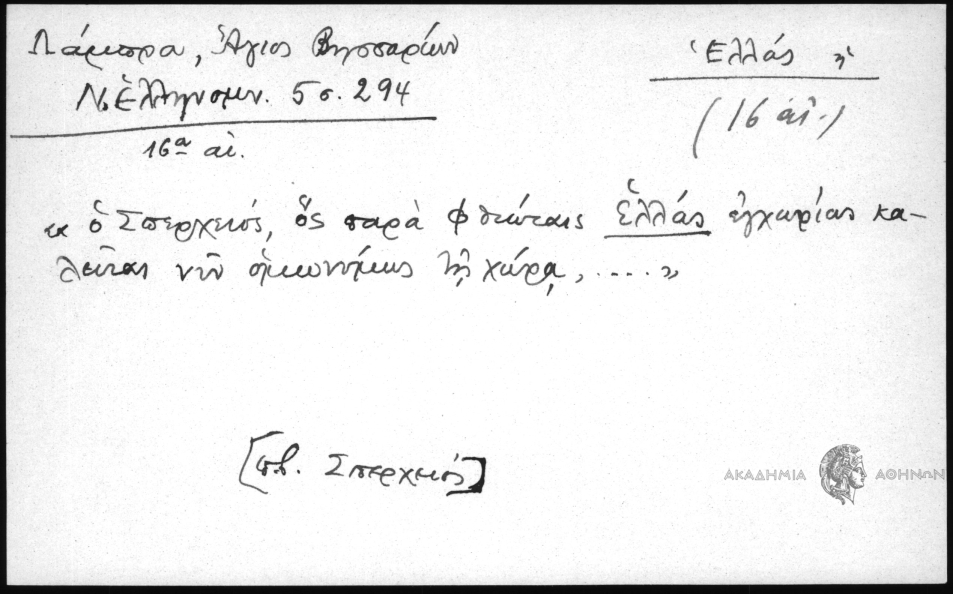 Λάμπρα, Ἅγιος Βησσαρίων
Ν. Ἑλληνομν. 5 σ. 294
16α αἰ.
Ἑλλάς ἡ
(16 αἰ.)
« ὁ Σπερχειός, ὃς παρὰ Φθιώταις Ἑλλάς ἐγχωρίως κα-
λεῖται νῦν ὁμωνύμως τῇ χώρᾳ, .... »
[πβ. Σπερχειός]
ΑΚΑΔΗΜΙΑ ΑΘΗΝΩΝ